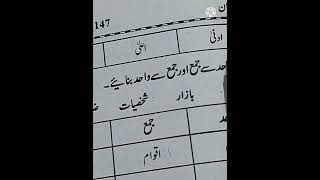 147
ادنیٰ اعلیٰ
سے جمع اور جمع سے واحد بنائیے۔
بازار شخصیات
جمع
اقوام